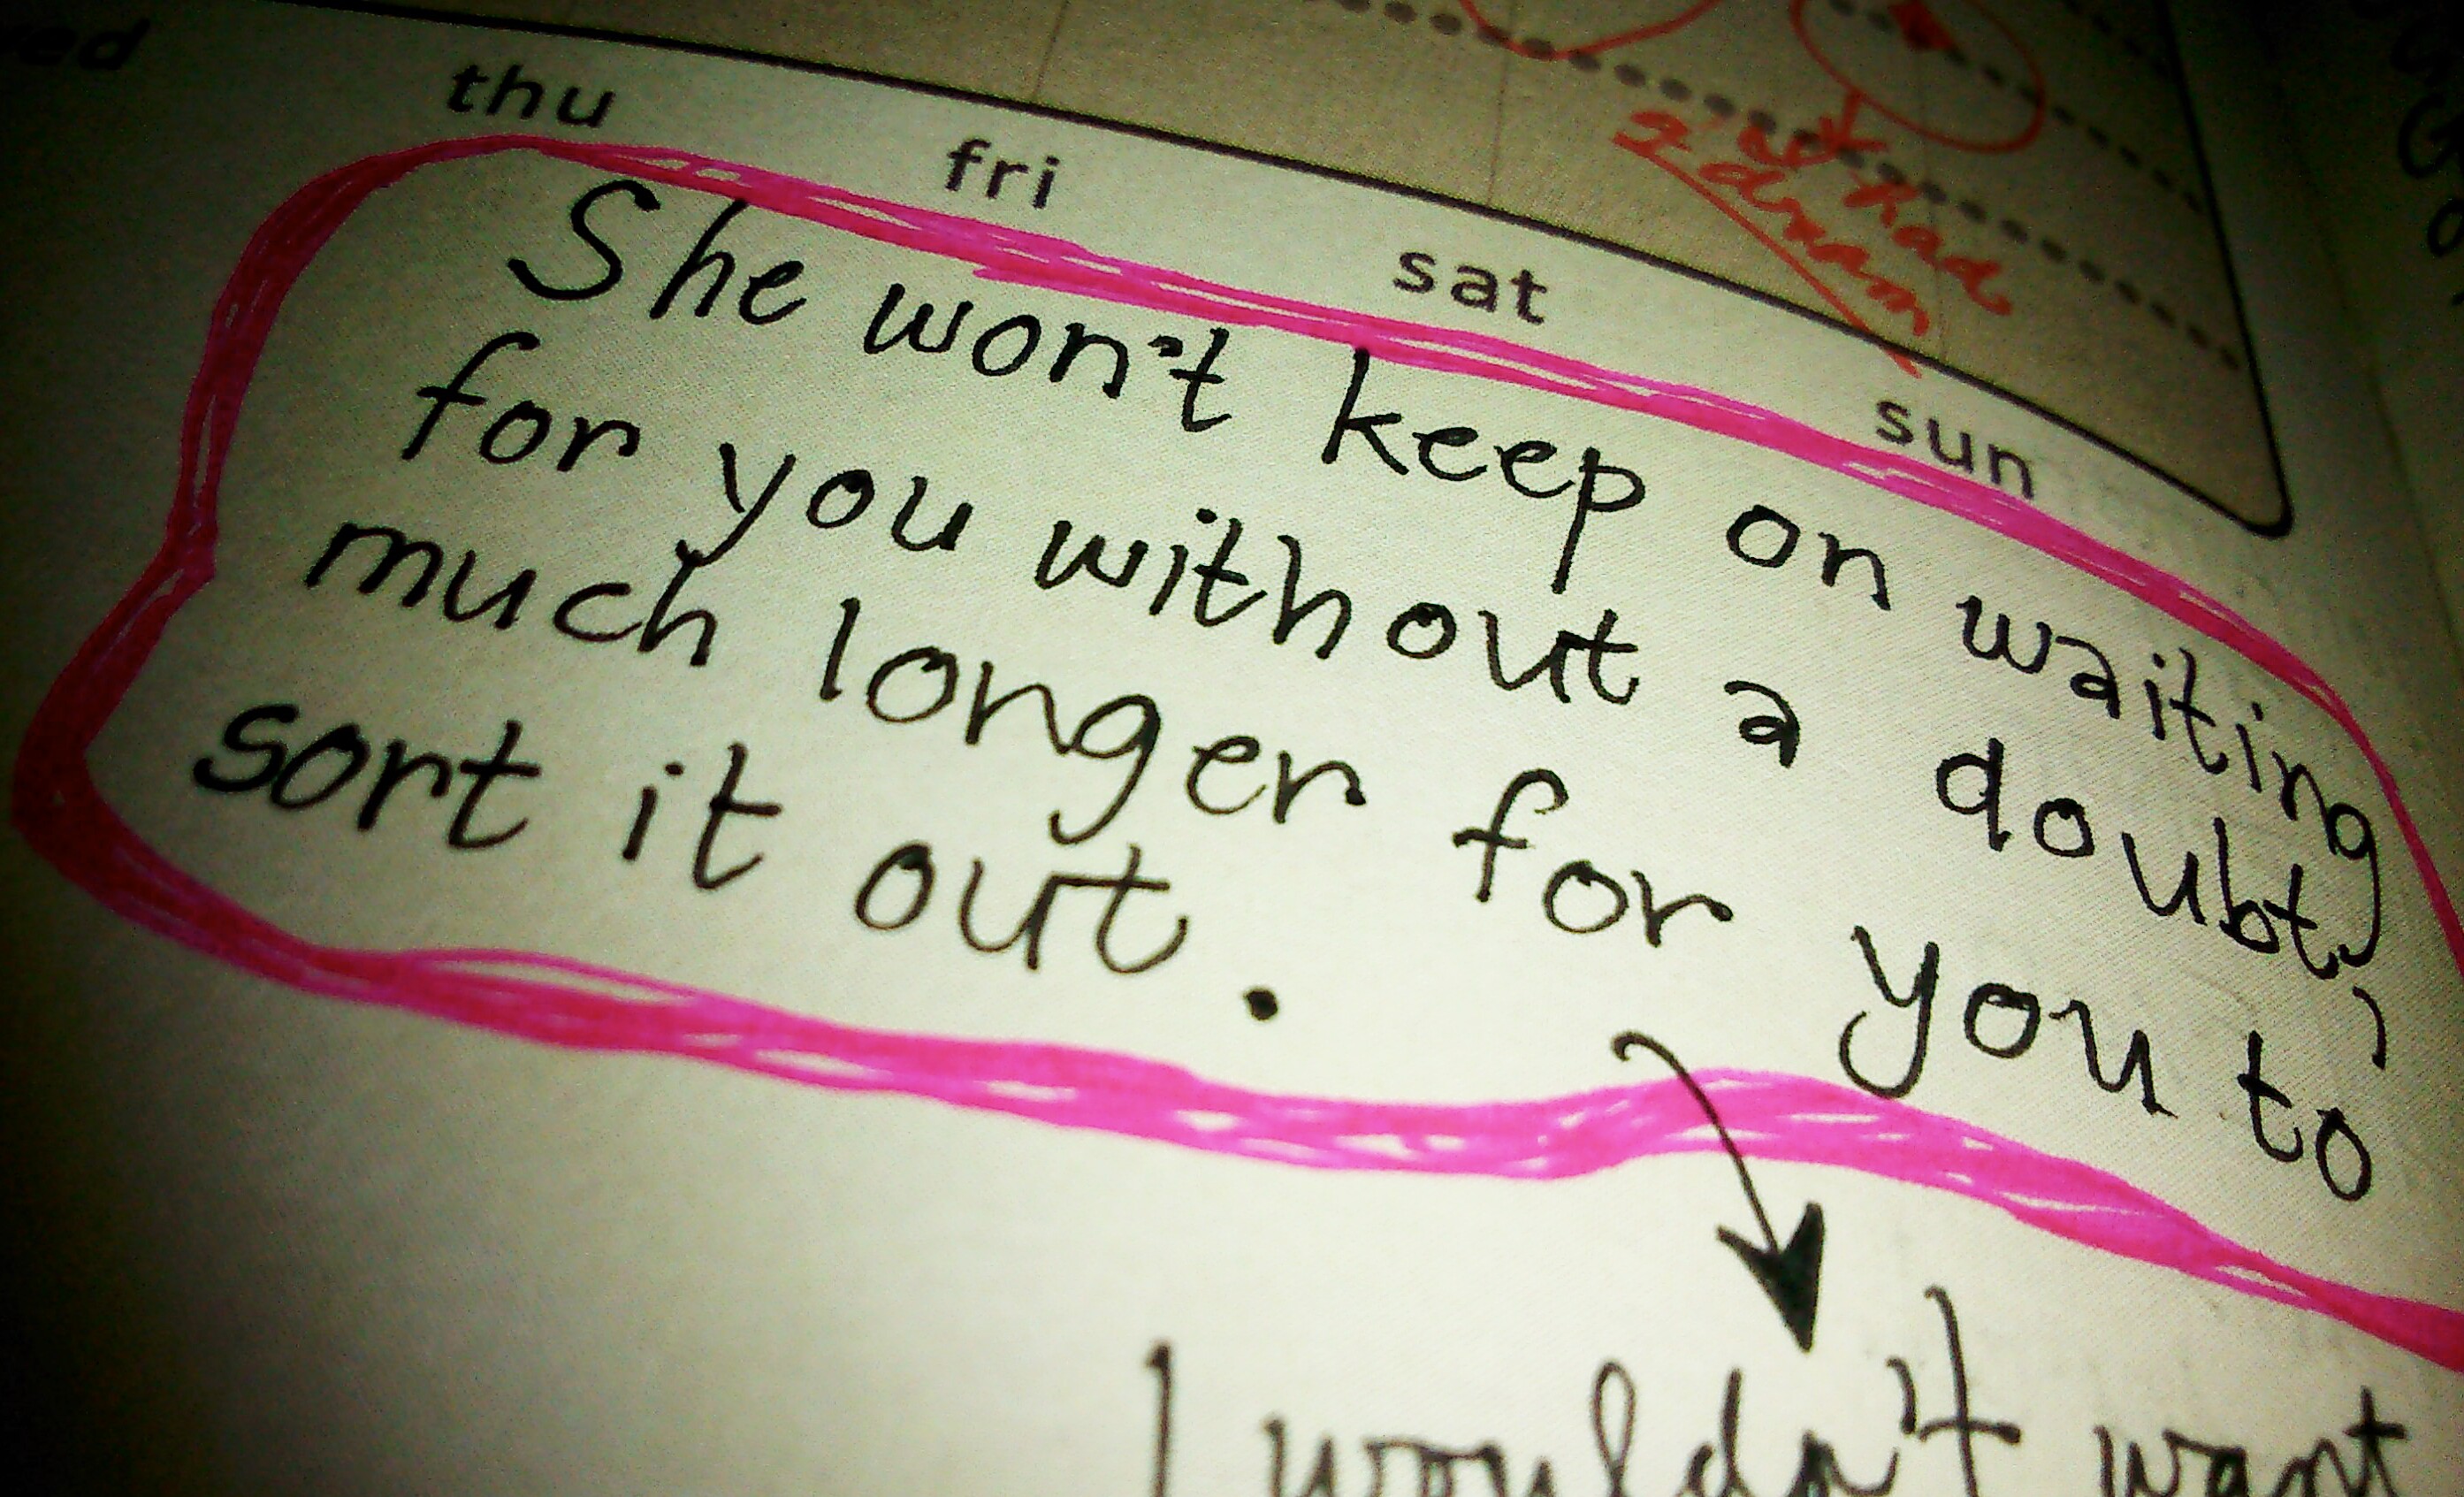 thu fri sat sun
I had
a dream
She won't keep on waiting
for you without a doubt,
much longer for you to
sort it out.
I wouldn't want